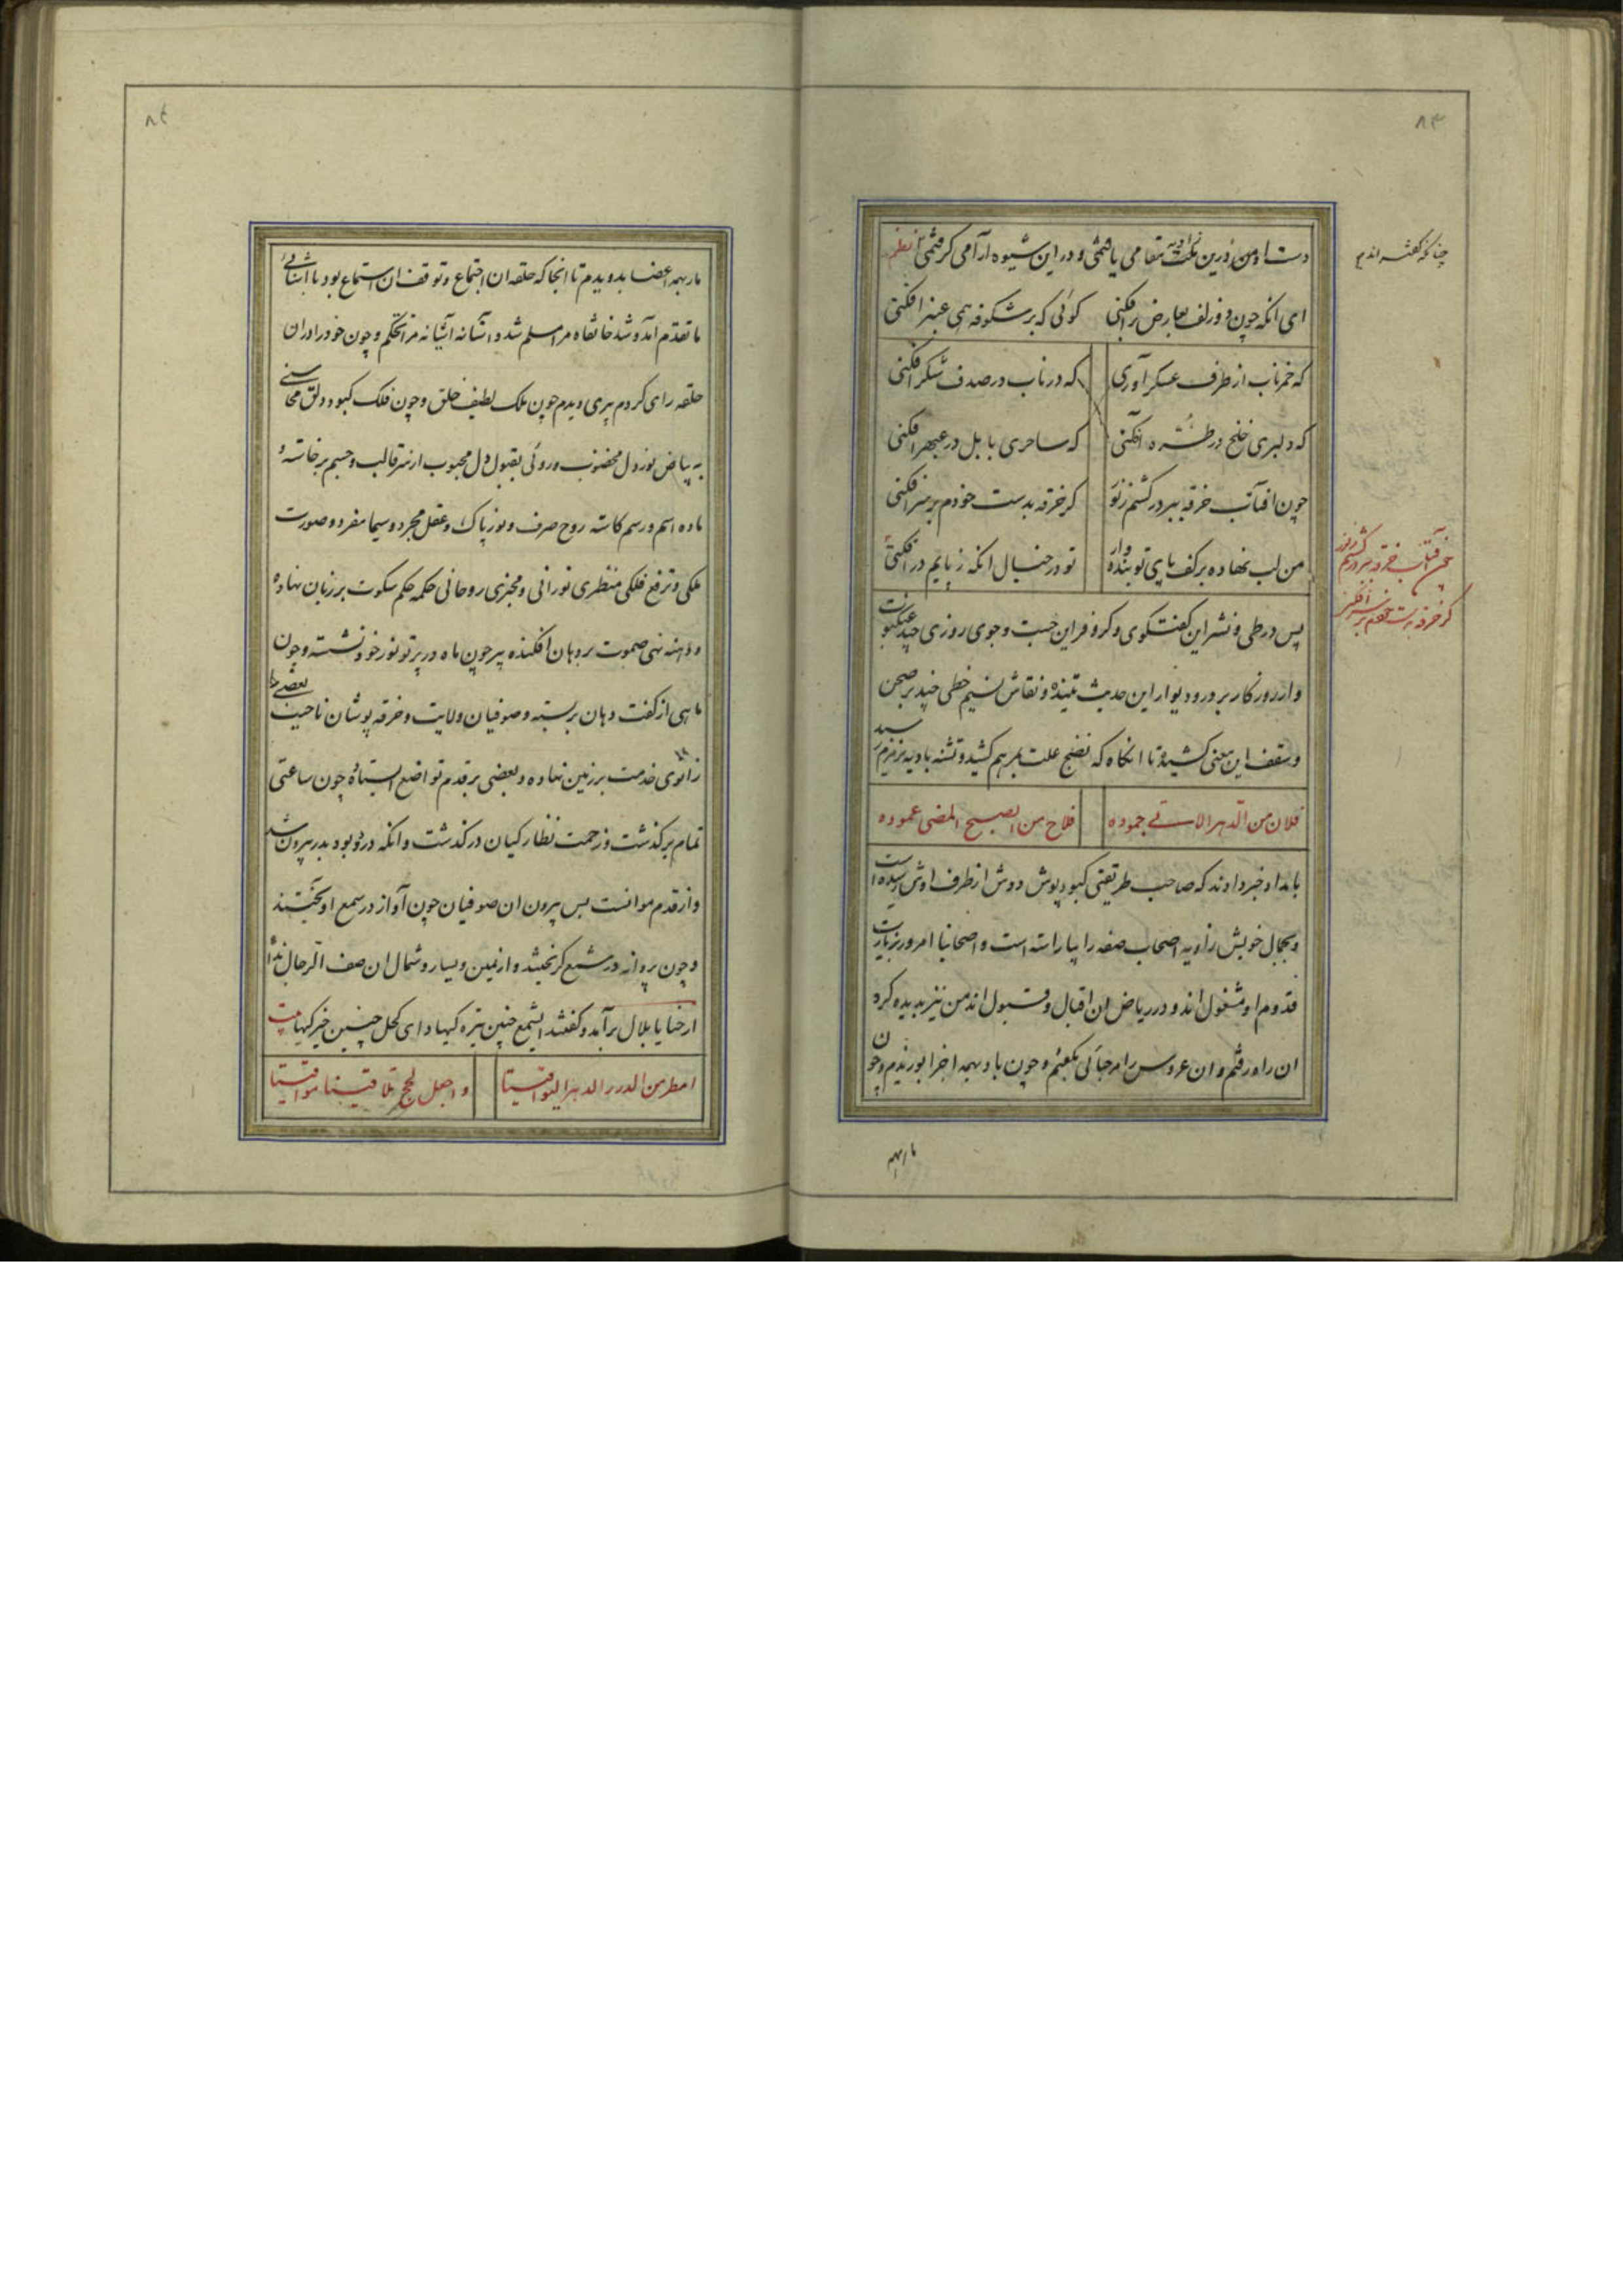 ۸۳
دست او من زین نکته مقامی یافتمی و در این شیوه آرامی گرفتمی نظم
چنانکه گفته اندم
ای آنکه چون دو زلف بعارض برافکنی گوئی که بر شکوفه همی عنبر افکنی
که خمر ناب از طرف عسکر آوری که در ناب در صدف شکر افکنی
که دلبری خلخ در طره آکنی که ساحری بابل در عبهر افکنی
چون افتاب خرقه ببر در کشم ز تو کر خرقه بدست خودم بر سر افکنی
چون آفتاب خرقه ببر در کشم ز نور
کر خرقه بدست خودم بر سر افکنی
من لب نهاده بر کف پای تو بنده وار تو در خیال آنکه ز پایم در افکنی
پس در طی و نشر این گفتگوی و کر و فر این جست و جوی روزی چند عنکبوت
وار روزگار بر در و دیوار این حدیث تنیده و نقاش نسیم خطی چند بر صحن
و سقف این معنی کشیده تا انگاه که نضج علت بمرهم کشید و تشنه بادیه بزمزم رسید
فلان من الدهر الاسی جموده فلاح من الصبح المضی عموده
بامداد خبر دادند که صاحب طریقتی کبود پوش دوش از طرف اوش رسیده است
و بجمال خویش زاویه اصحاب صفه را بیاراسته است و اصحابنا امروز بزیارت
قدوم او مشغول اند و در ریاض ان اقبال و قبول اند من نیز بدیده کرد
ان راه رفتم و ان عروس را مرحبائی بگفتم و چون باد بهمه اجزا بوزیدم و چون
مار بهمه
۸۴
مار بهمه اعضا بدویدم تا انجا که حلقه ان اجتماع و توقف ان استماع بود با اشنائی
ما تقدم آمد و شد خانقاه مرا مسلم شد و آستانه آشیانه مرا محکم و چون خود را در ان
حلقه رای کردم پیری دیدم چون ملک لطیف خلق و چون فلک کبود دلق محاسنی
به بیاض نور دل مخضوب و روئی بقبول دل محبوب از سر قالب و جسم برخاسته و
ماده اسم و رسم کاسته روح صرف و نور پاک و عقل مجرد و سیما مفرد و صورت
ملکی و ترفع فلکی منظری نورانی و مخبری روحانی حکمه حکم سکوت بر زبان نهاده
و دهنه نهی صموت بر دهان افکنده پیر چون ماه در پرتو نور خود نشسته و چون
ماهی از گفت دهان بر بسته و صوفیان ولایت و خرقه پوشان ناحیت بعضی
زانوی خدمت بر زمین نهاده و بعضی بر قدم تواضع ایستاده چون ساعتی
تمام بر گذشت و زحمت نظارگیان در گذشت و آنکه در نو بود بدر بیرون شد
و از قدم موانست پس بیرون ان صوفیان چون آواز در سمع او یختند
و چون پروانه در شمع گریختند و از یمین و یسار و شمال ان صف الرجال ندا
ارحنا یا بلال بر آمد و گفتند ای شمع چنین تیره گیها و ای کحل چنین خیرگیها بیت
امطر من الدرر الدهر الیواقیتا و اجعل لحج تلاقینا مواقیتا